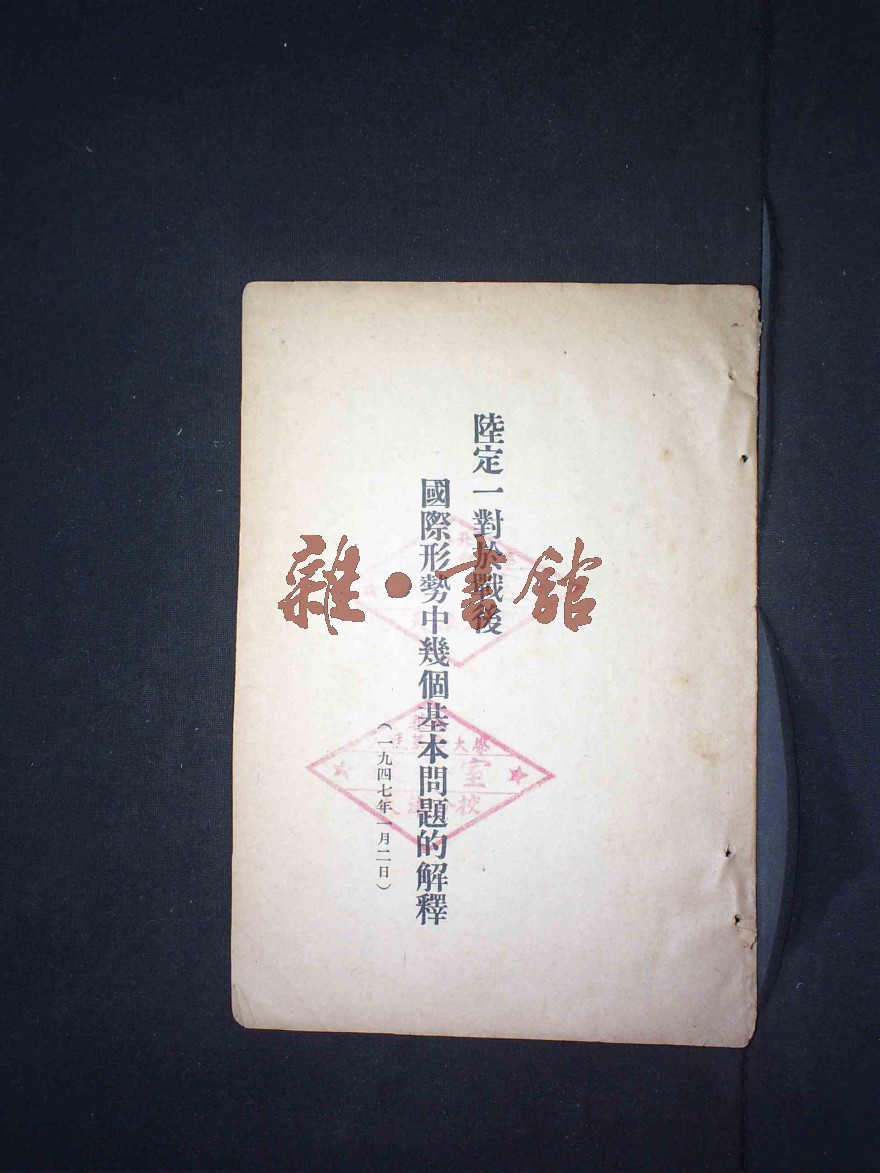 陸定一對於戰後
國際形勢中幾個基本問題的解釋
（一九四七年一月二日）
雜·書館
大學
室
校